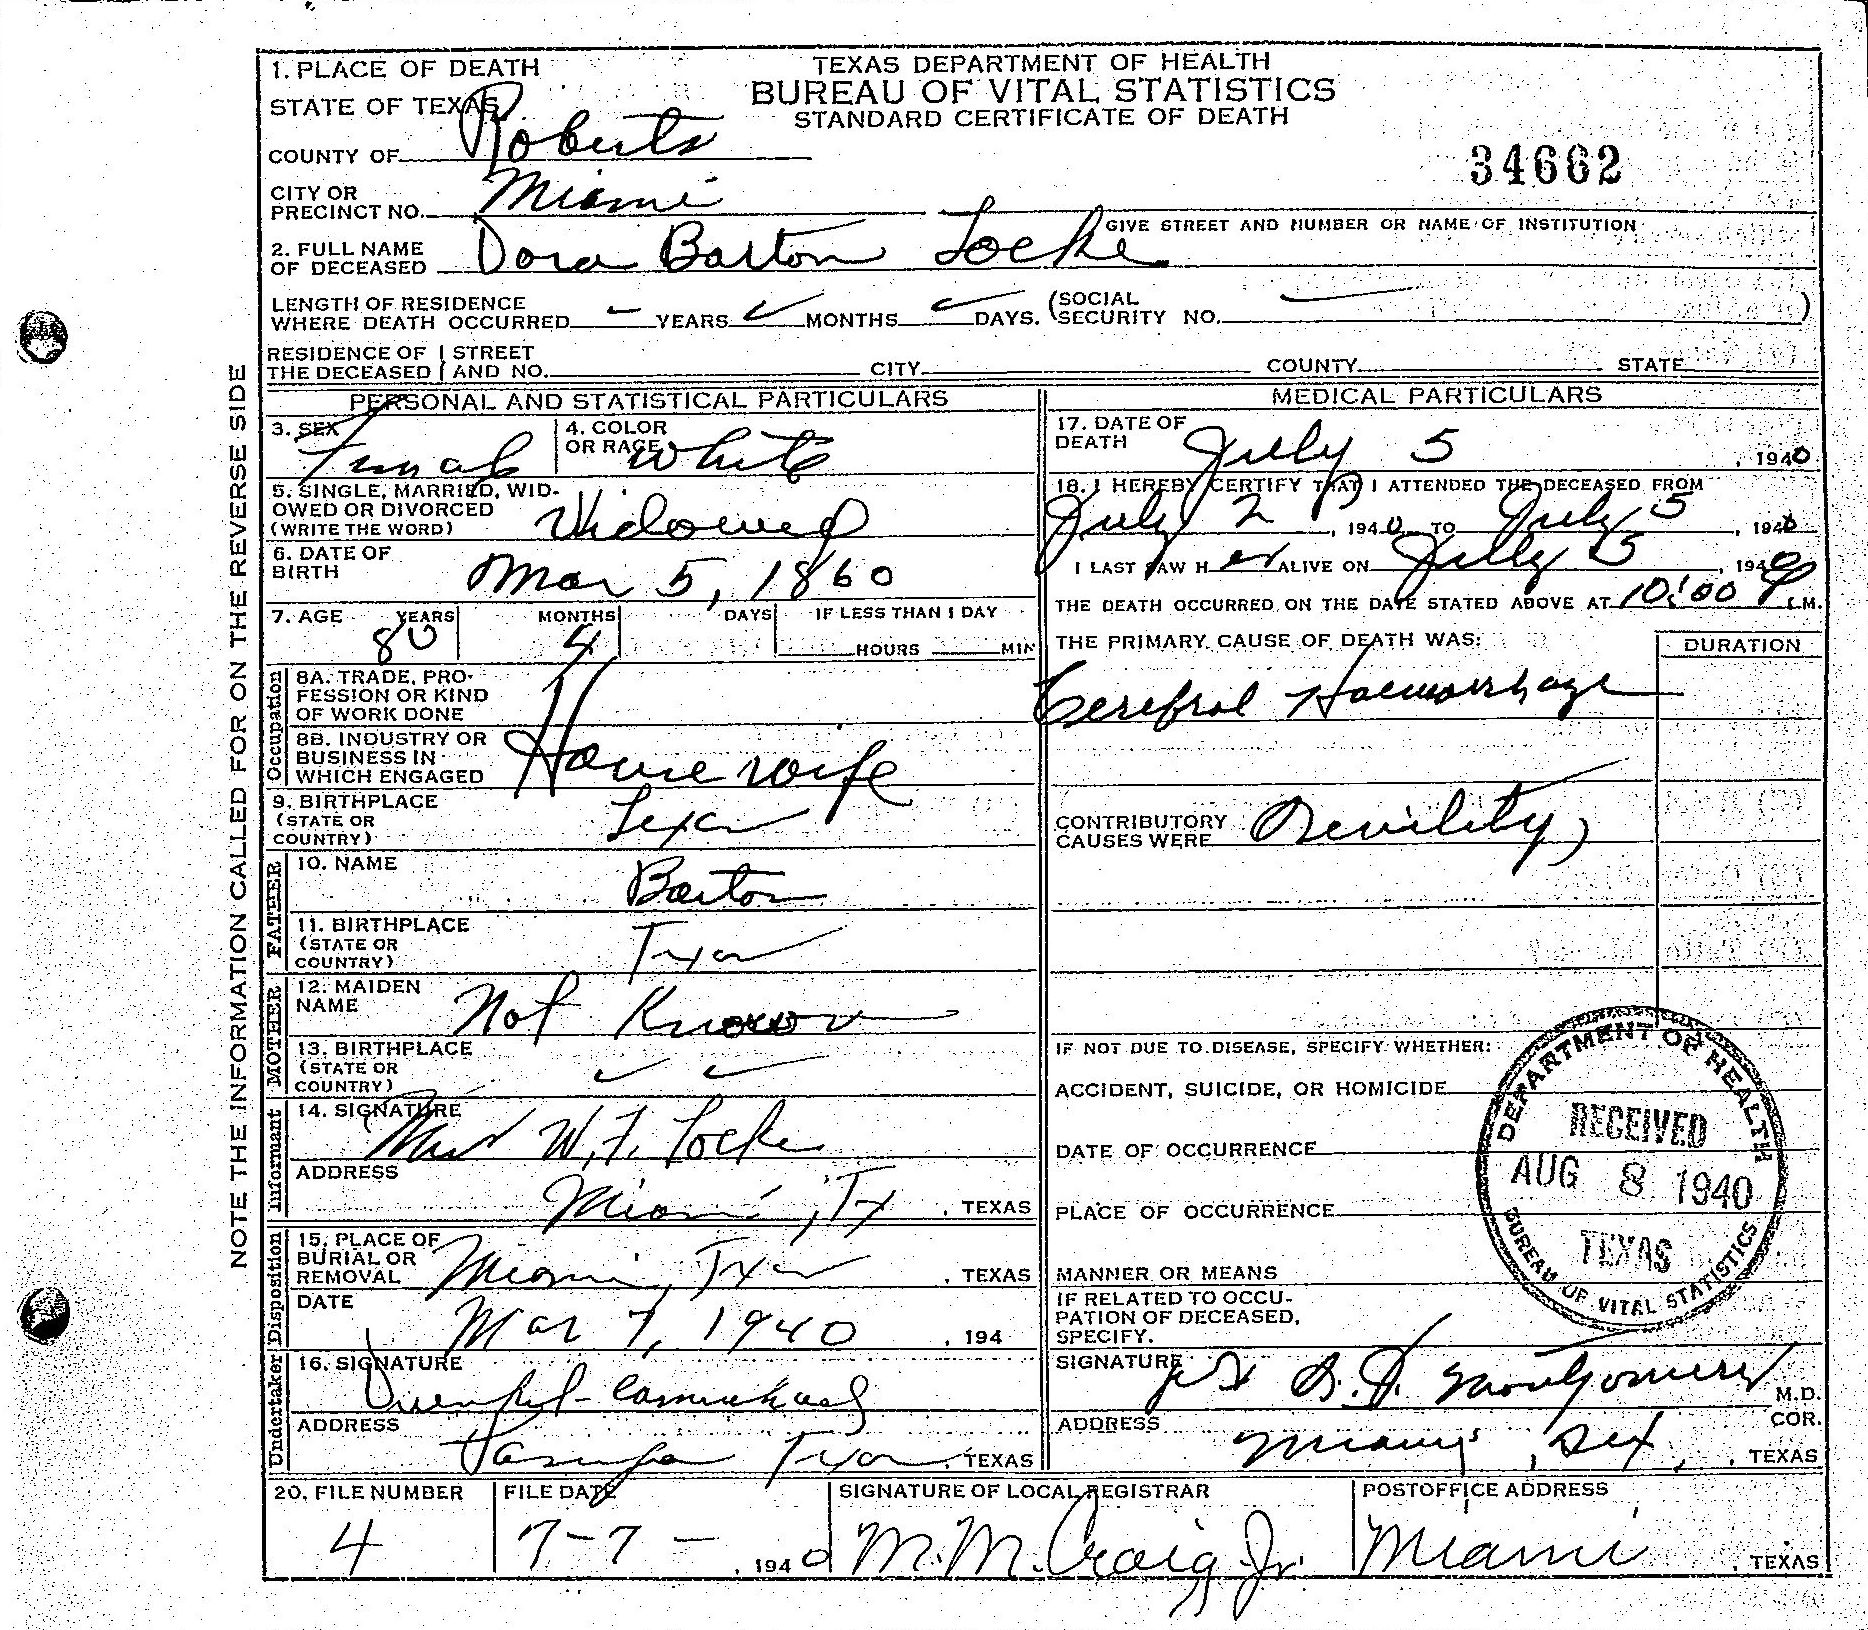 TEXAS DEPARTMENT OF HEALTH
BUREAU OF VITAL STATISTICS
STANDARD CERTIFICATE OF DEATH
34662
1. PLACE OF DEATH
STATE OF TEXAS
COUNTY OF Roberts
CITY OR
PRECINCT NO. Miami
GIVE STREET AND NUMBER OR NAME OF INSTITUTION
2. FULL NAME
OF DECEASED Dora Barton Locke
LENGTH OF RESIDENCE
WHERE DEATH OCCURRED - YEARS ✓ MONTHS ✓ DAYS. (SOCIAL SECURITY NO. — )
RESIDENCE OF THE DECEASED { STREET AND NO. CITY COUNTY STATE
NOTE THE INFORMATION CALLED FOR ON THE REVERSE SIDE
PERSONAL AND STATISTICAL PARTICULARS
3. SEX Female
4. COLOR OR RACE White
5. SINGLE, MARRIED, WID-
OWED OR DIVORCED
(WRITE THE WORD) Widowed
6. DATE OF
BIRTH Mar 5, 1860
7. AGE YEARS MONTHS DAYS IF LESS THAN 1 DAY
80 4 HOURS MIN
Occupation
8A. TRADE, PRO-
FESSION OR KIND
OF WORK DONE
8B. INDUSTRY OR
BUSINESS IN
WHICH ENGAGED House wife
9. BIRTHPLACE
(STATE OR
COUNTRY) Texas
FATHER
10. NAME Barton
11. BIRTHPLACE
(STATE OR
COUNTRY) Texas
MOTHER
12. MAIDEN
NAME Not Known
13. BIRTHPLACE
(STATE OR
COUNTRY) ✓ ✓
Informant
14. SIGNATURE Mrs W. F. Locke
ADDRESS
Miami, Tx , TEXAS
Disposition
15. PLACE OF
BURIAL OR
REMOVAL Miami, Texas , TEXAS
DATE
Mar 7, 1940 , 194
Undertaker
16. SIGNATURE
ADDRESS
Pampa Texas , TEXAS
MEDICAL PARTICULARS
17. DATE OF
DEATH July 5 , 1940
18. I HEREBY CERTIFY THAT I ATTENDED THE DECEASED FROM
July 2 , 1940 TO July 5 , 1940
I LAST SAW H er ALIVE ON July 5 , 1940
THE DEATH OCCURRED ON THE DATE STATED ABOVE AT 10:00 P .M.
THE PRIMARY CAUSE OF DEATH WAS: DURATION
Cerebral Haemorrhage
CONTRIBUTORY
CAUSES WERE Senility
IF NOT DUE TO DISEASE, SPECIFY WHETHER:
ACCIDENT, SUICIDE, OR HOMICIDE
DATE OF OCCURRENCE
PLACE OF OCCURRENCE
MANNER OR MEANS
IF RELATED TO OCCU-
PATION OF DECEASED,
SPECIFY.
SIGNATURE Montgomery M.D.
COR.
ADDRESS Miami, , TEXAS
DEPARTMENT OF HEALTH
RECEIVED
AUG 8 1940
TEXAS
BUREAU OF VITAL STATISTICS
20. FILE NUMBER FILE DATE SIGNATURE OF LOCAL REGISTRAR POSTOFFICE ADDRESS
4 7-7- , 1940 M. M. Craig, Jr. Miami , TEXAS